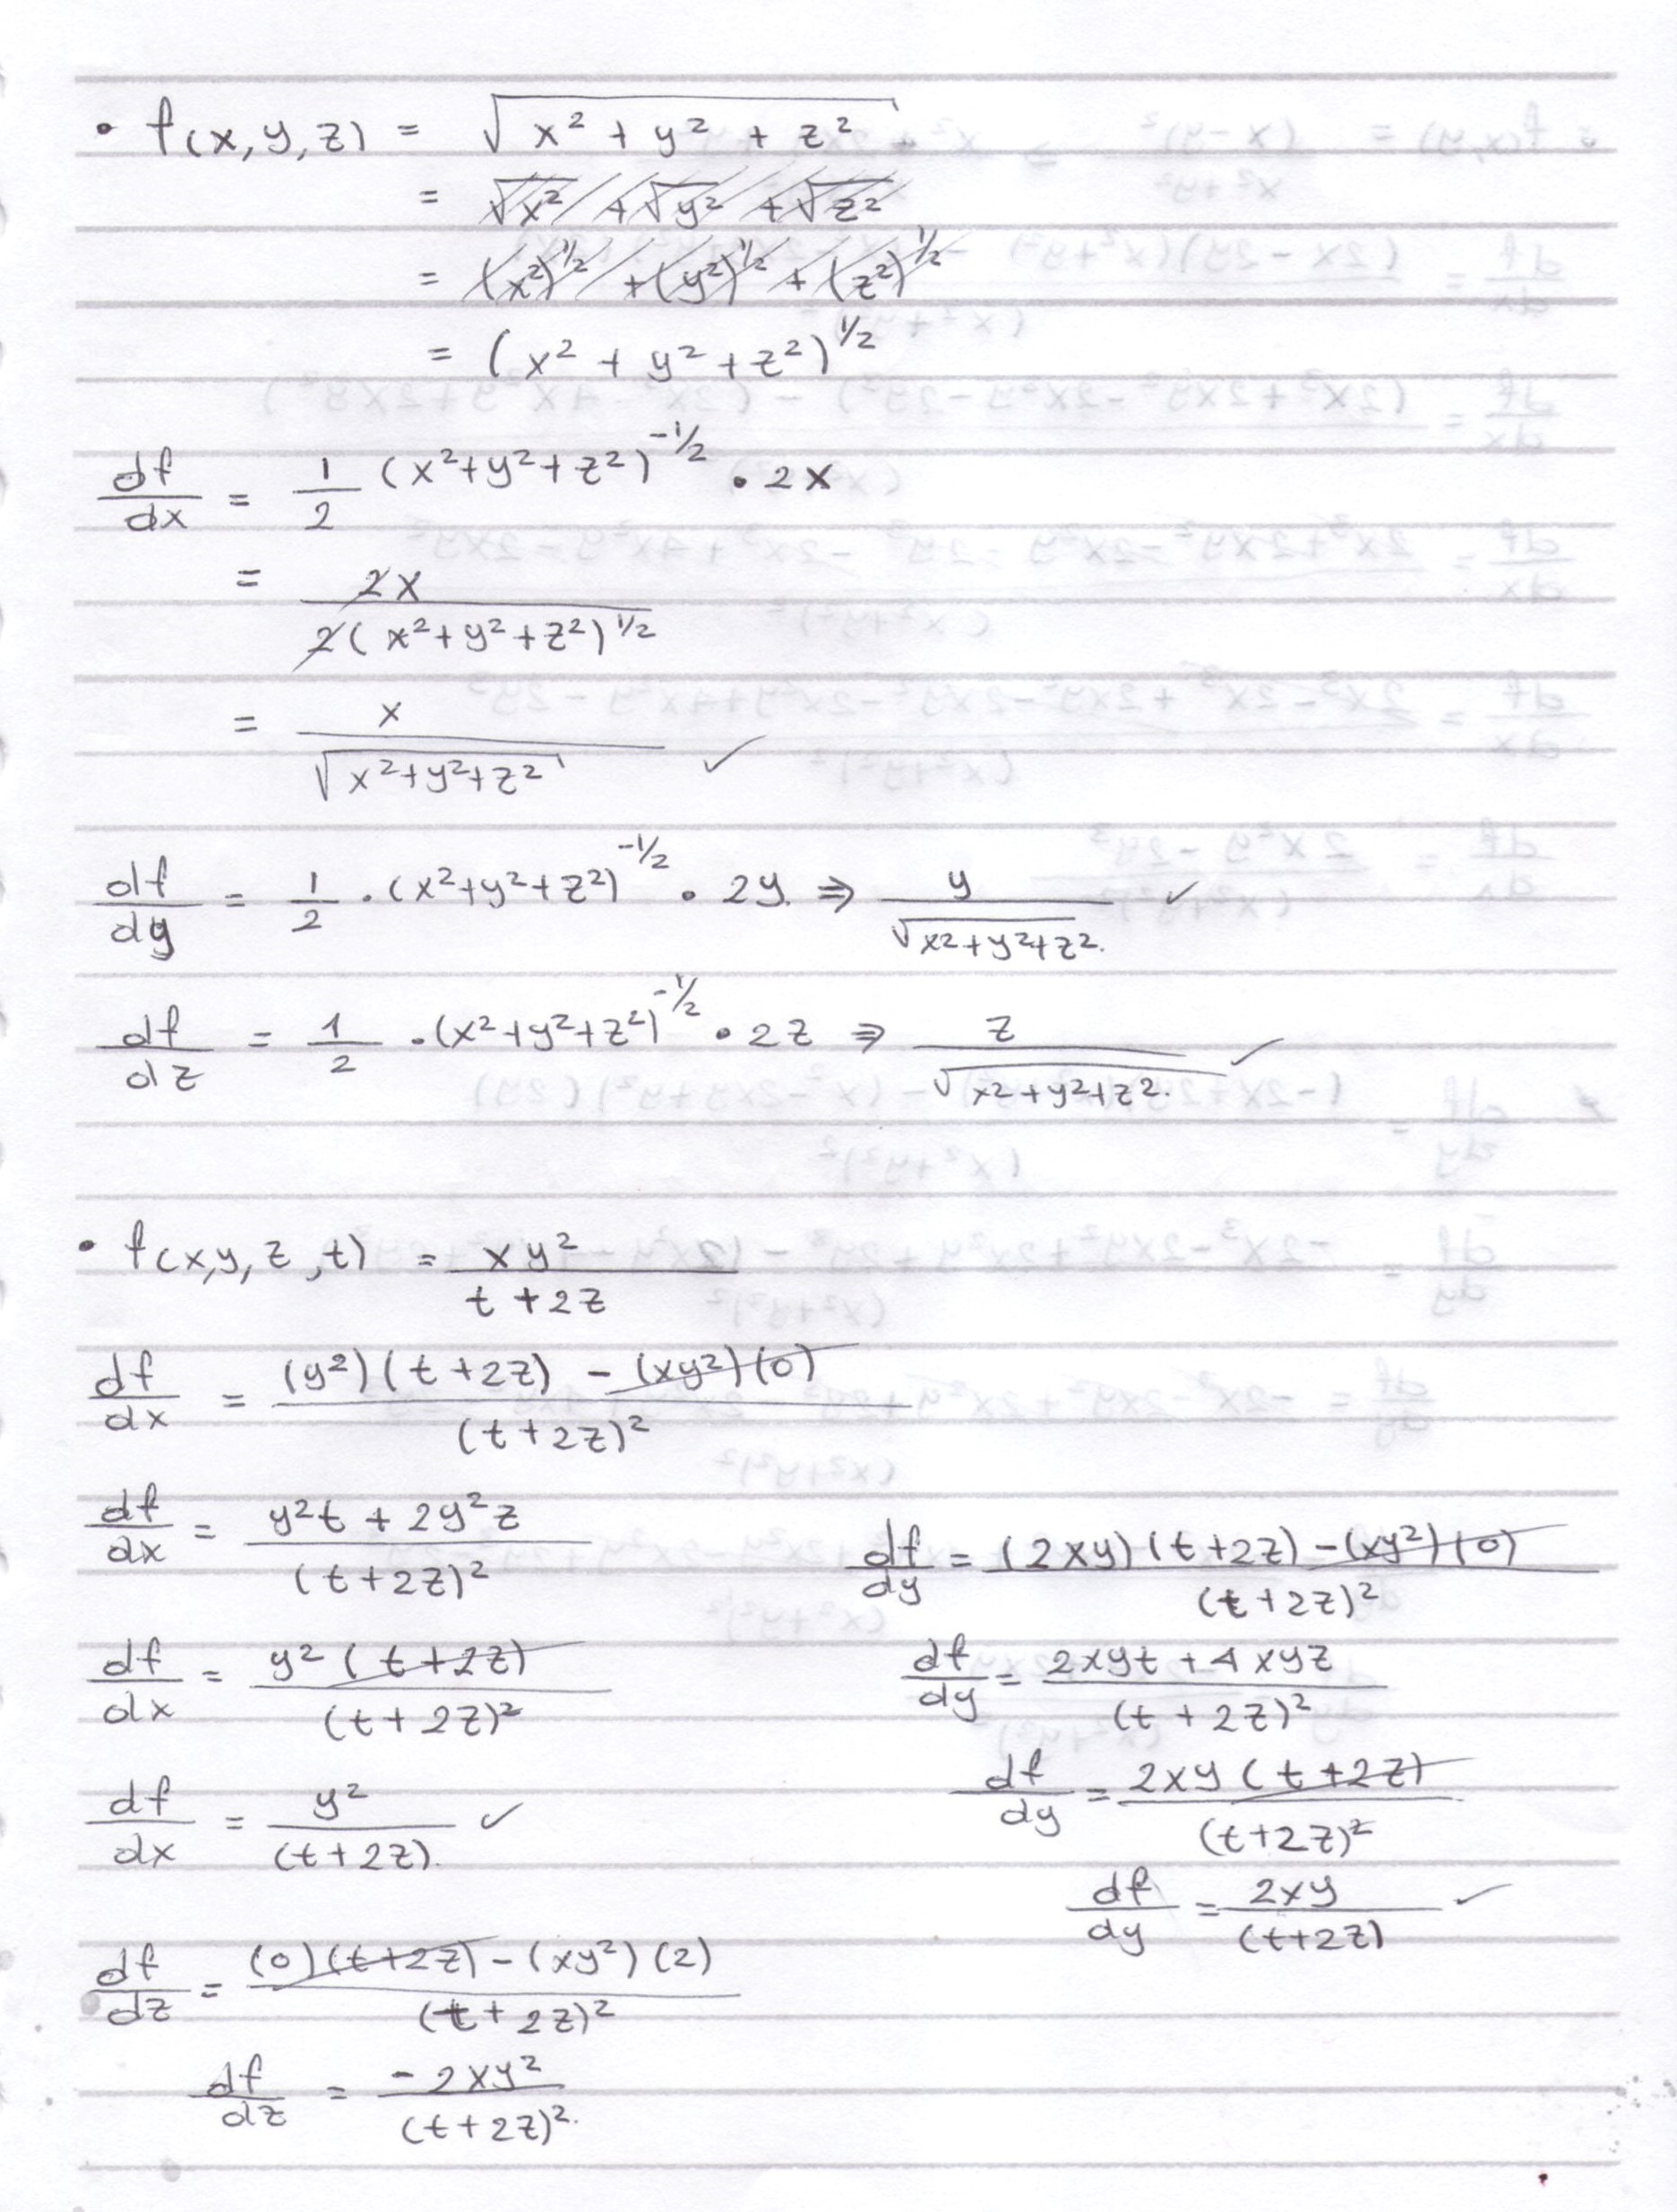 • f(x,y,z) = √(x² + y² + z²)
= √x² + √y² + √z²
= (x²)^1/2 + (y²)^1/2 + (z²)^1/2
= (x² + y² + z²)^1/2
df/dx = 1/2 (x²+y²+z²)^-1/2 • 2x
= 2x / 2(x²+y²+z²)^1/2
= x / √(x²+y²+z²) ✓
df/dy = 1/2 . (x²+y²+z²)^-1/2 • 2y. ⇒ y / √(x²+y²+z²). ✓
df/dz = 1/2 .(x²+y²+z²)^-1/2 • 2z ⇒ z / √(x²+y²+z²). ✓
• f(x,y,z,t) = xy² / t+2z
df/dx = (y²)(t+2z) - (xy²)(0) / (t+2z)²
df/dx = y²t + 2y²z / (t+2z)²
df/dx = y² (t+2z) / (t+2z)²
df/dx = y² / (t+2z). ✓
df/dy = (2xy)(t+2z) - (xy²)(0) / (t+2z)²
df/dy = 2xyt + 4xyz / (t+2z)²
df/dy = 2xy (t+2z) / (t+2z)²
df/dy = 2xy / (t+2z) ✓
df/dz = (0)(t+2z) - (xy²)(2) / (t+2z)²
df/dz = -2xy² / (t+2z)².